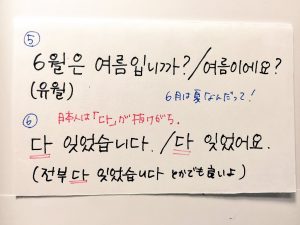 ⑤
6월은 여름입니까?/여름이에요?
(유월)
6月は夏なんだって!
⑥
日本人は「다」が抜けがち。
다 잊었습니다./다 잊었어요.
(전부 다 잊었습니다 とかでも良いよ)